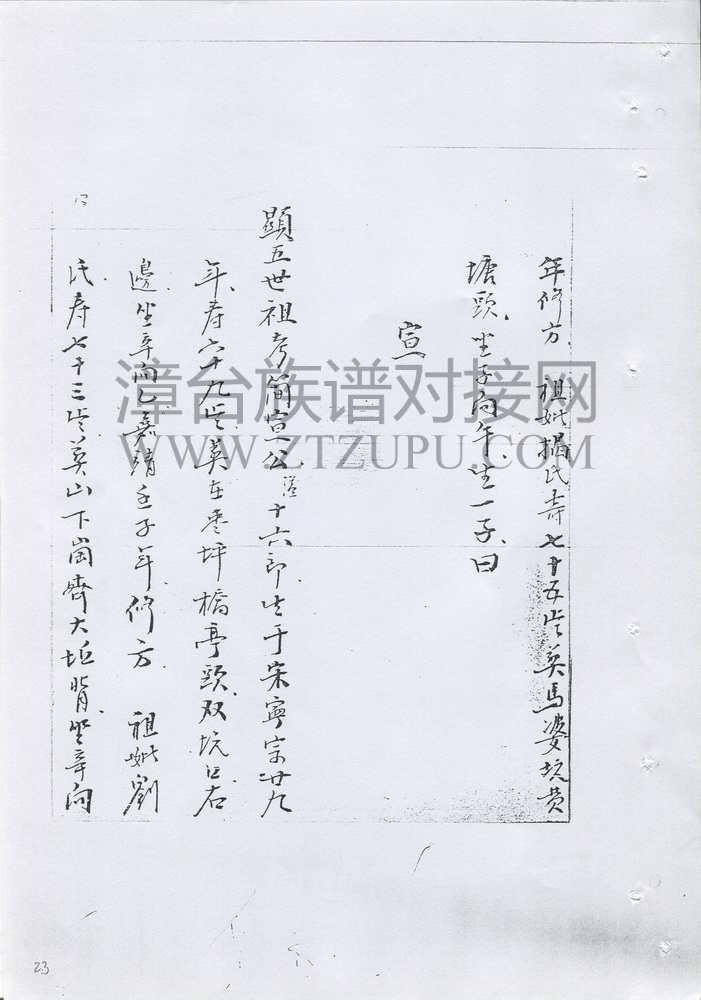 年修方 祖妣揭氏壽七十五岁葬馬婆坑黄
塘頭坐子向午生一子曰
宣
顯五世祖考簡宣公謚十六郎生于宋寧宗廿九
年寿六十九岁葬在枣坪橋亭頭双坑口右
邊坐辛向乙嘉靖壬子年修方 祖妣劉
氏寿七十三岁葬山下崗齊大坵背坐辛向
漳台族谱对接网
WWW.ZTZUPU.COM
23